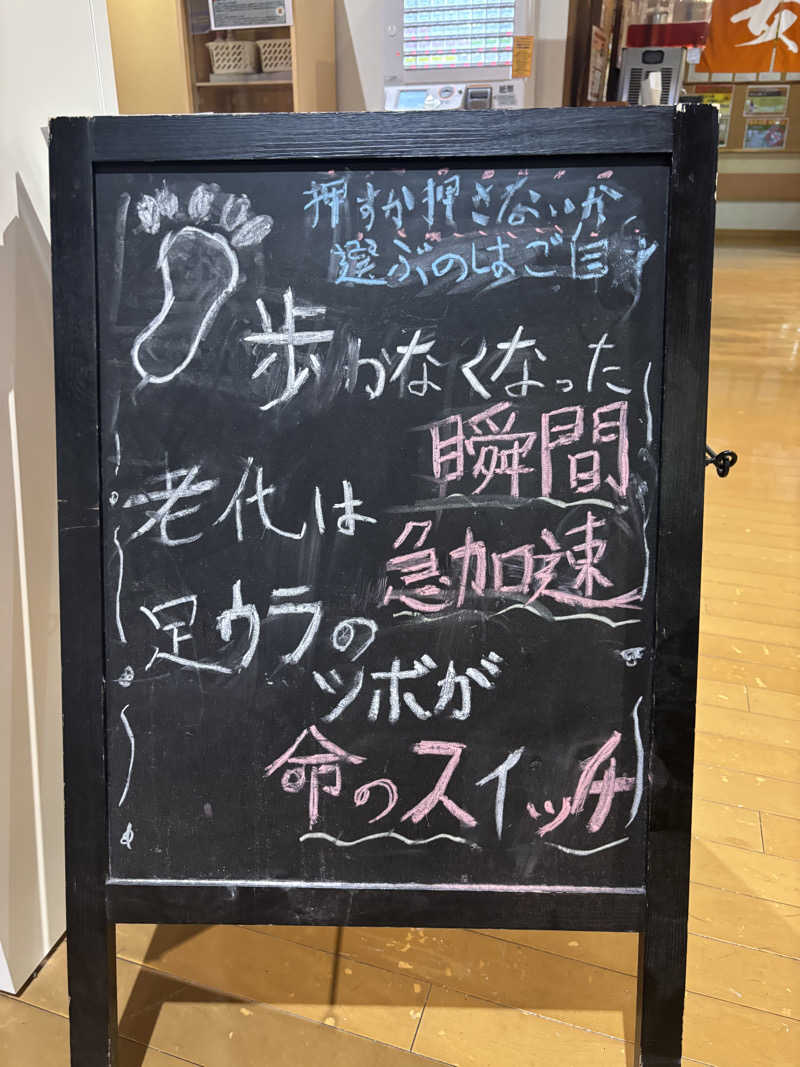 押すか押さないか
選ぶのはご自身
歩かなくなった
瞬間
老化は
急加速
足ウラの
ツボが
命のスイッチ